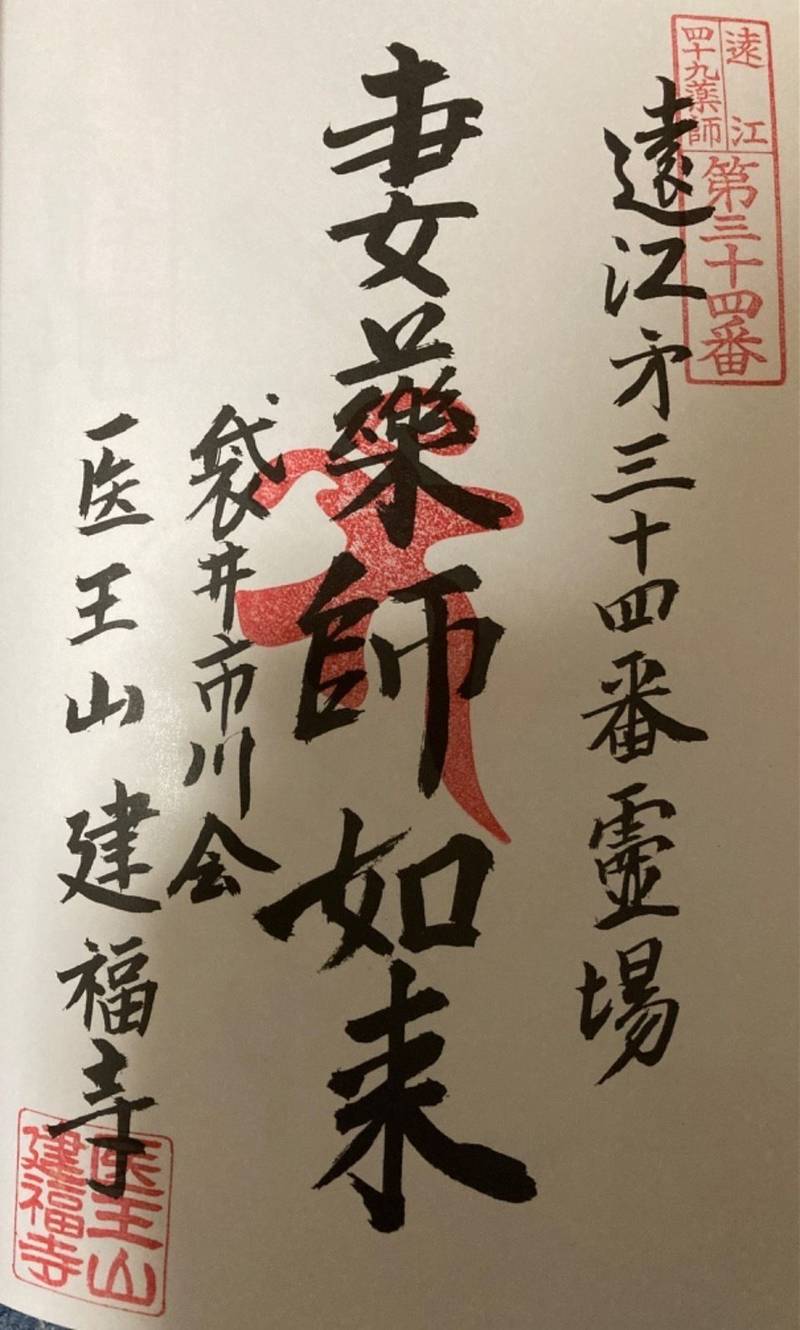 遠江
四十九薬師
第三十四番
遠江才三十四番霊場
妻薬師如来
袋井市川会
医王山建福寺
医王山
建福寺